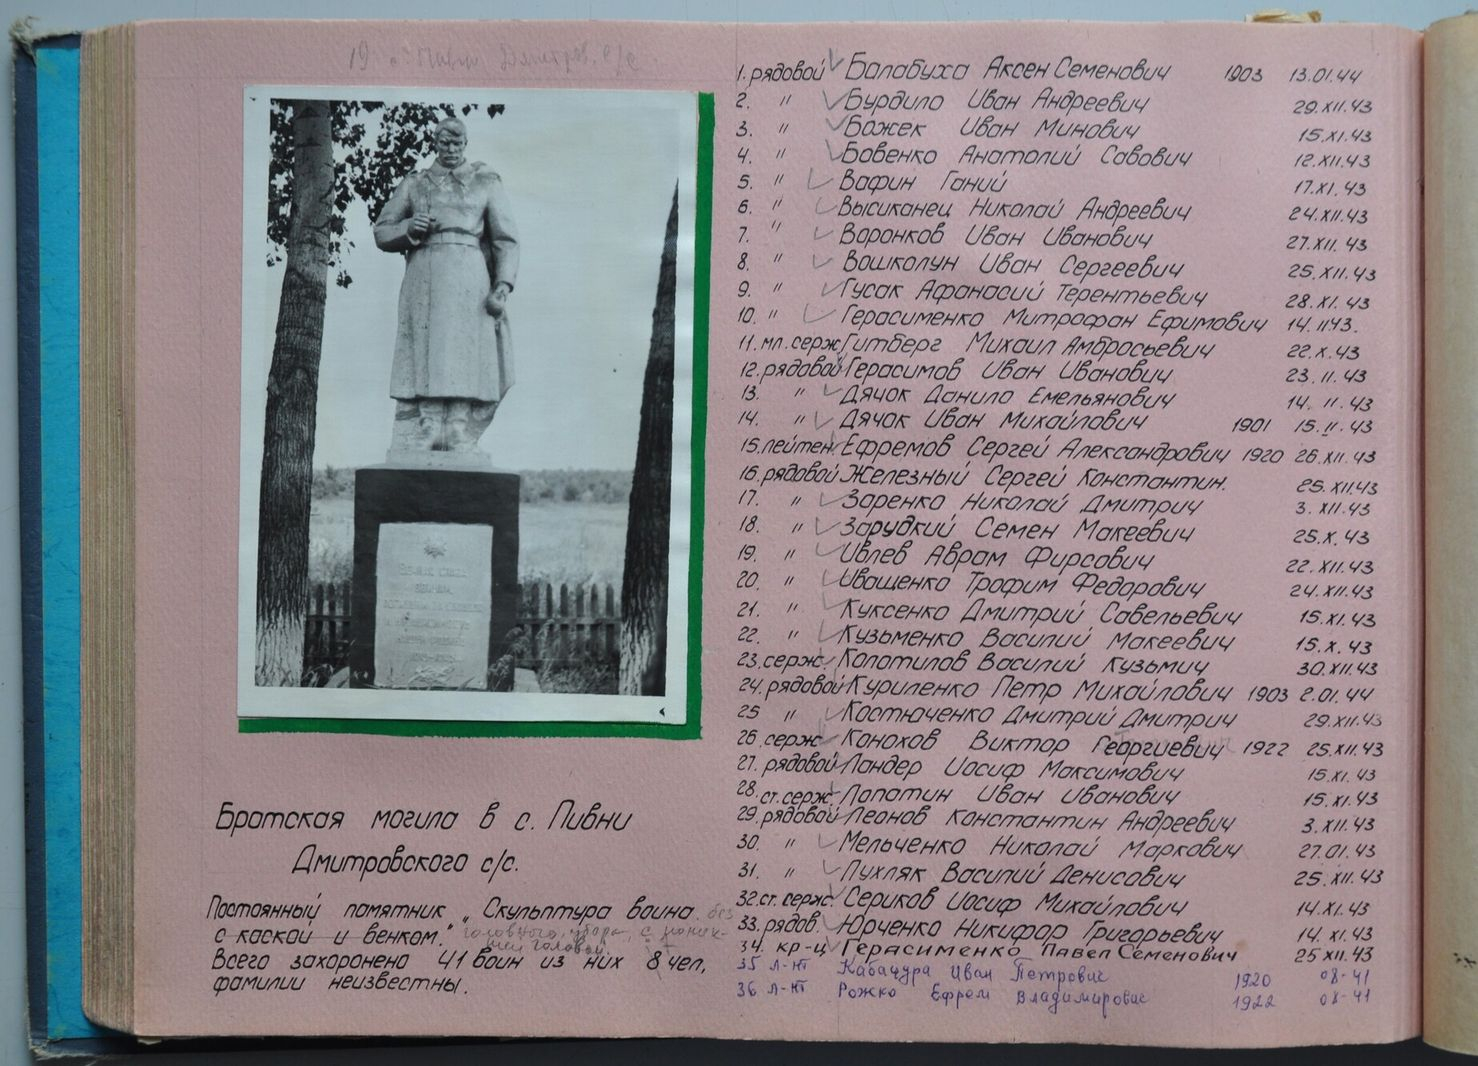 19 Пивни Дмитров. с/с
Братская могила в с. Пивни
Дмитровского с/с.
Постоянный памятник „Скульптура воина без
с каской и венком." головного убора, с поник-
шей головой
Всего захоронено 41 воин из них 8 чел,
фамилии неизвестны.
1. рядовой Балабуха Аксен Семенович 1903 13.01.44
2. " Бурдило Иван Андреевич 29.XII.43
3. " Божек Иван Минович 15.XI.43
4. " Бовенко Анатолий Савович 12.XII.43
5. " Вафин Ганий 17.XI.43
6. " Высиканец Николай Андреевич 24.XII.43
7. " Воронков Иван Иванович 27.XII.43
8. " Вошколун Иван Сергеевич 25.XII.43
9. " Гусак Афанасий Терентьевич 28.XI.43
10. " Герасименко Митрофан Ефимович 14.II43.
11. мл. серж. Гитберг Михаил Амбросьевич 22.X.43
12. рядовой Герасимов Иван Иванович 23.II.43
13. " Дячок Данило Емельянович 14.II.43
14. " Дячок Иван Михайлович 1901 15.II.43
15. лейтен. Ефремов Сергей Александрович 1920 26.XII.43
16. рядовой Железный Сергей Константин. 25.XII.43
17. " Заренко Николай Дмитрич 3.XII.43
18. " Зарудкий Семен Макеевич 25.X.43
19. " Ивлев Аврам Фирсович 22.XII.43
20. " Иващенко Трофим Федорович 24.XII.43
21. " Куксенко Дмитрий Савельевич 15.XI.43
22. " Кузьменко Василий Макеевич 15.X.43
23. серж. Копотилов Василий Кузьмич 30.XII.43
24. рядовой Куриленко Петр Михайлович 1903 2.01.44
25 " Костюченко Дмитрий Дмитрич 29.XII.43
26. серж. Конохов Виктор Георгиевич 1922 25.XII.43
27. рядовой Ландер Иосиф Максимович 15.XI.43
28. ст. серж. Лопатин Иван Иванович 15.XI.43
29. рядовой Леонов Константин Андреевич 3.XII.43
30. " Мельченко Николай Маркович 27.01.43
31. " Пухляк Василий Денисович 25.XII.43
32. ст. серж. Сериков Иосиф Михайлович 14.XI.43
33. рядов. Юрченко Никифор Григорьевич 14.XI.43
34. кр-ц Герасименко Павел Семенович 25 XII.43
35 л-нт Кабачура Иван Петрович 1920 08-41
36 л-нт Рожко Ефрем Владимирович 1922 08-41